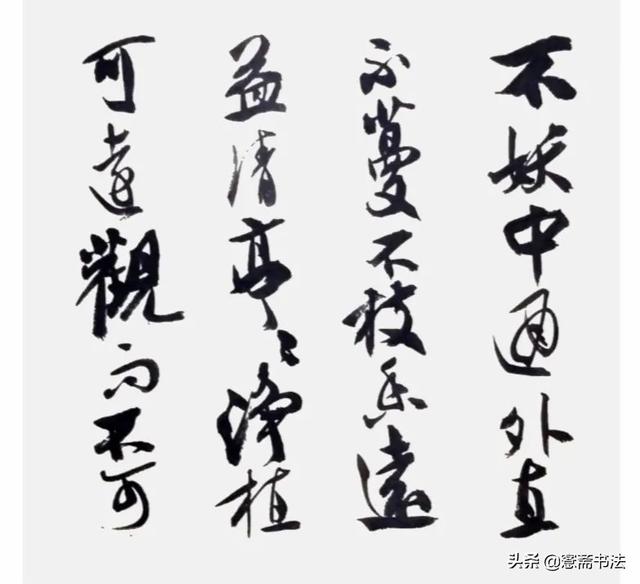 不妖中通外直
不蔓不枝香遠
益清亭〻淨植
可遠觀而不可
头条 @憲斋书法